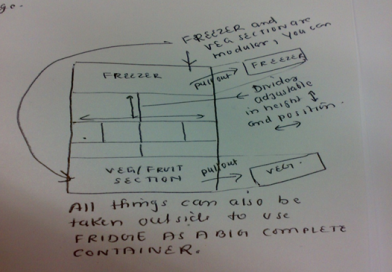 go.
FREEZER and
VEG SECTION are
modular, You can
FREEZER
pull out
FREEZER
Divider
adjustable
in height
and position.
VEG/FRUIT
SECTION
pull out
VEG.
All things can also be
taken outside to use
FRIDGE AS A BIG COMPLETE
CONTAINER.